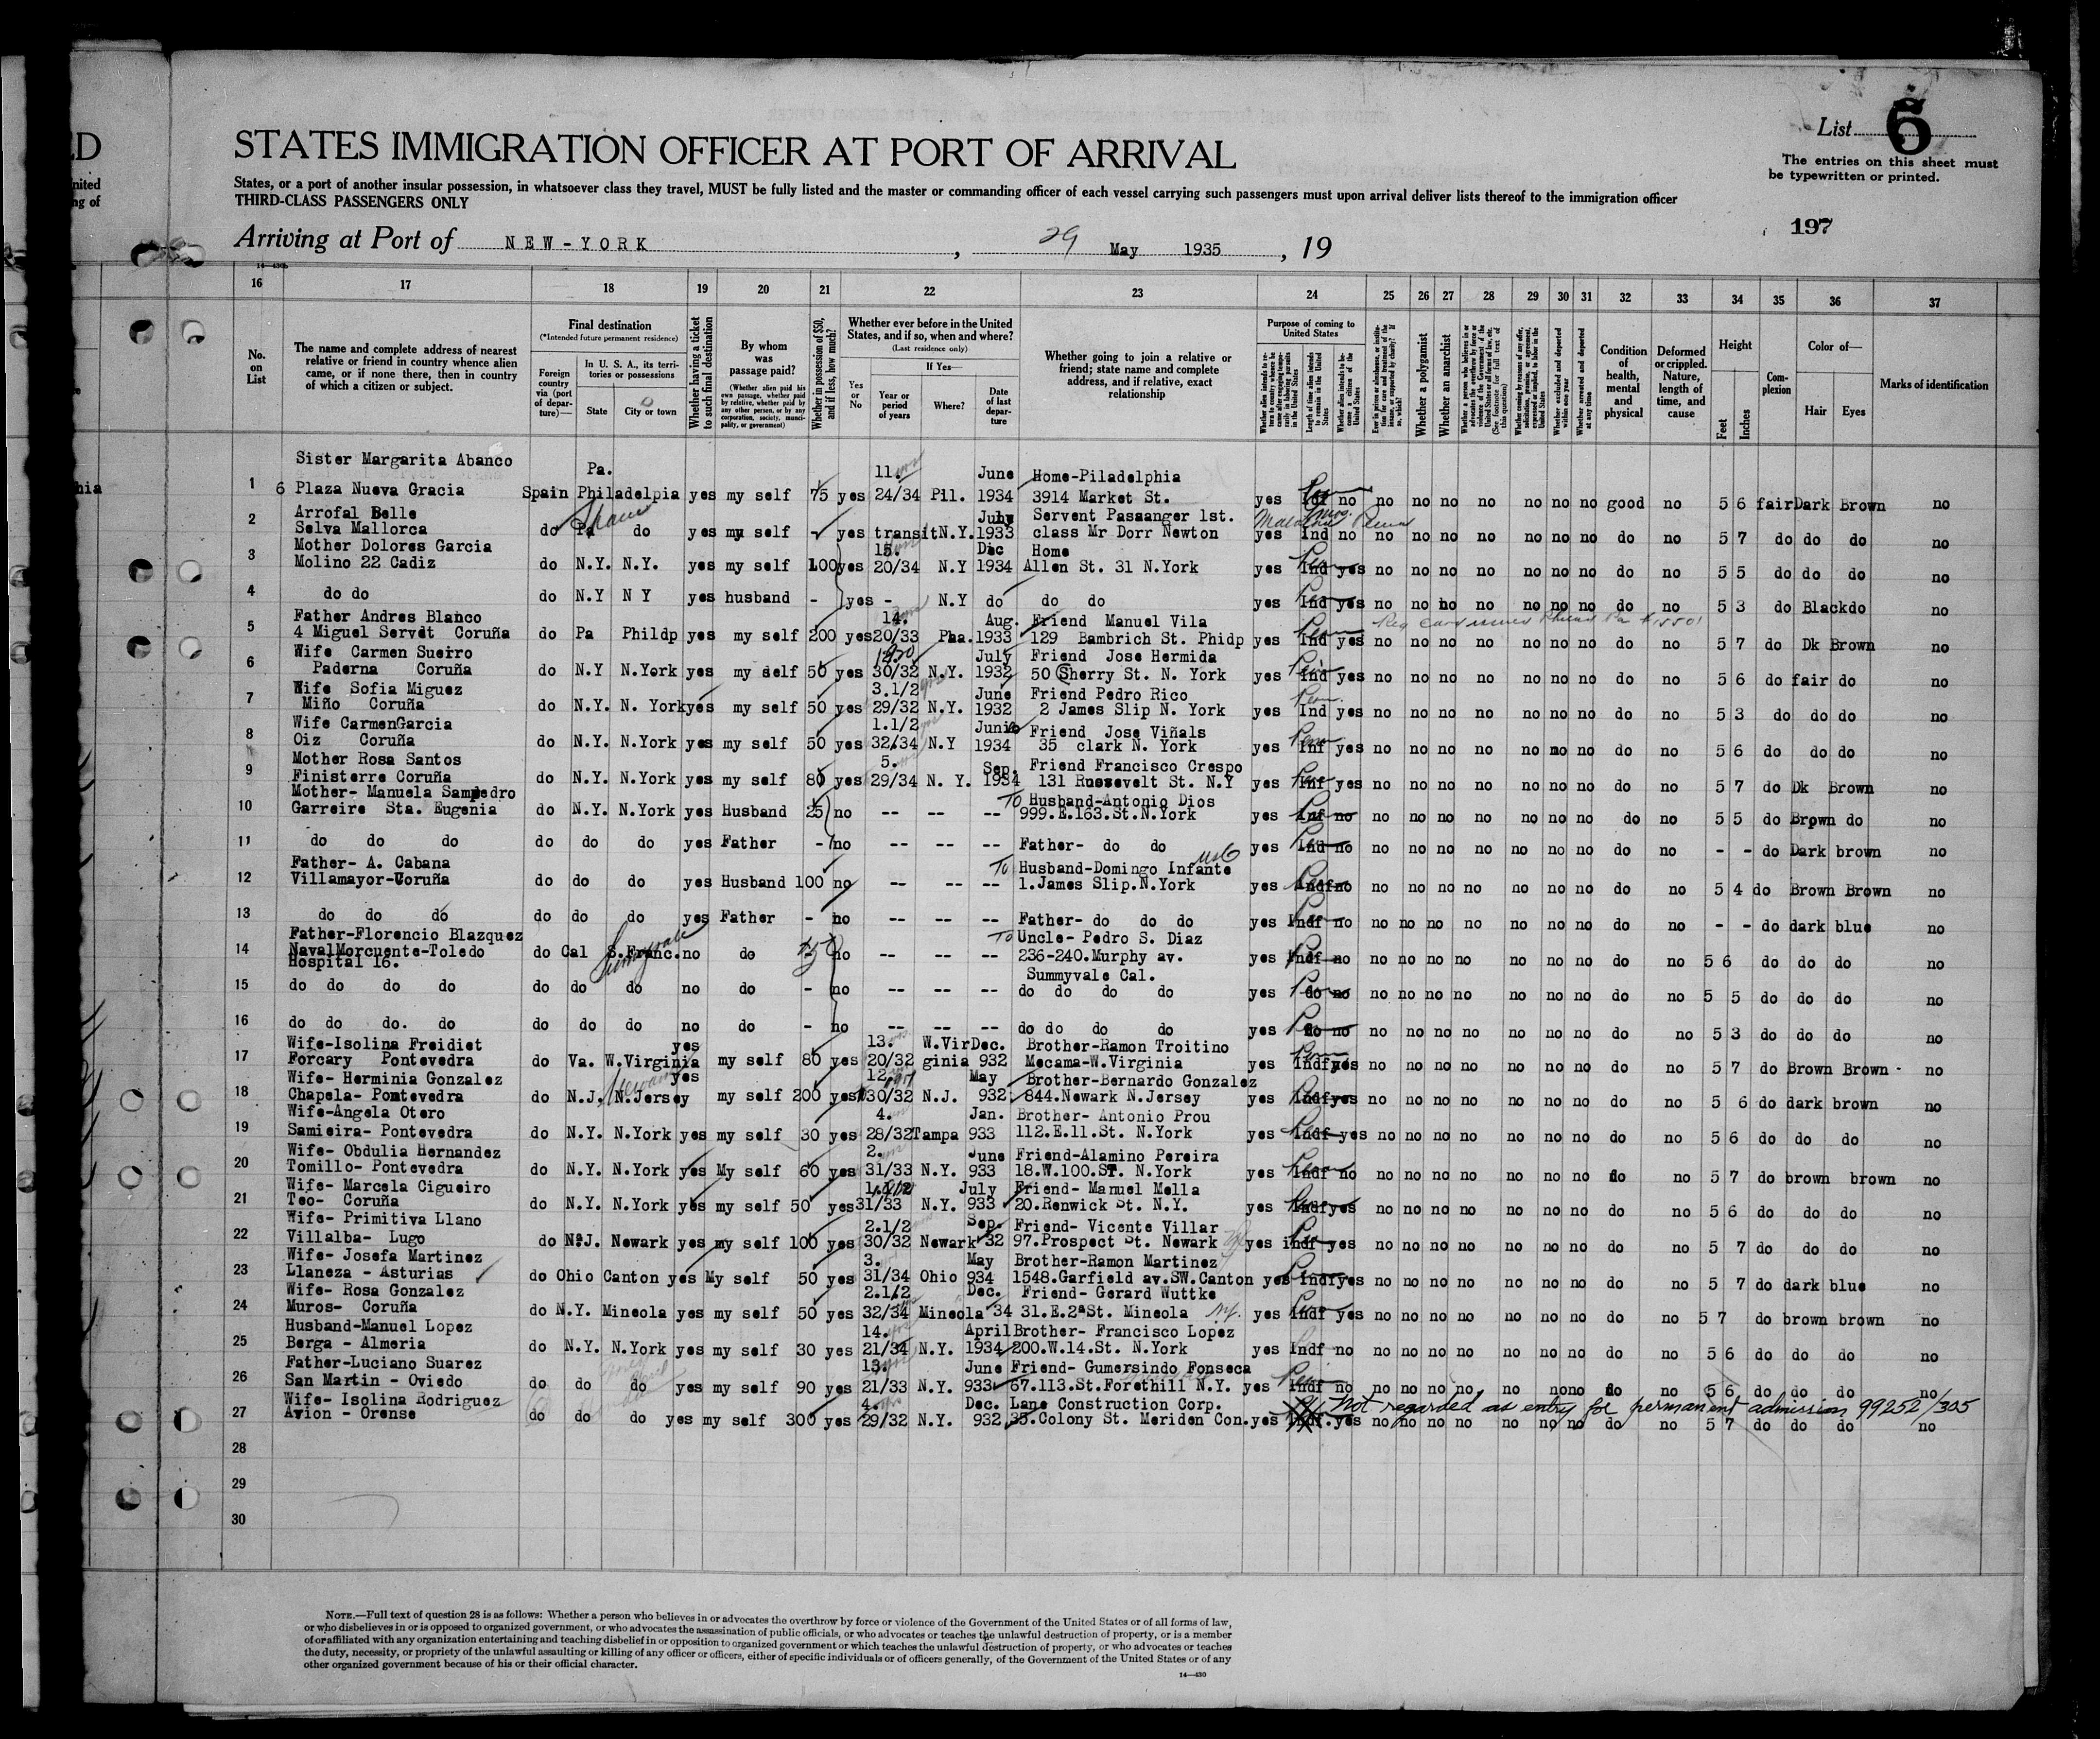 List 6
STATES IMMIGRATION OFFICER AT PORT OF ARRIVAL
The entries on this sheet must
be typewritten or printed.
States, or a port of another insular possession, in whatsoever class they travel, MUST be fully listed and the master or commanding officer of each vessel carrying such passengers must upon arrival deliver lists thereof to the immigration officer
THIRD-CLASS PASSENGERS ONLY
197
Arriving at Port of NEW-YORK, 29 May 1935, 19
16 17 18 19 20 21 22 23 24 25 26 27 28 29 30 31 32 33 34 35 36 37
No. on List
The name and complete address of nearest relative or friend in country whence alien came, or if none there, then in country of which a citizen or subject.
Final destination
(*Intended future permanent residence)
Foreign country via (port of departure)—
In U. S. A., its territories or possessions
State
City or town
Whether having a ticket to such final destination
By whom was passage paid?
(Whether alien paid his own passage, whether paid by relative, whether paid by any other person, or by any corporation, society, municipality, or government)
Whether in possession of $50, and if less, how much?
Whether ever before in the United States, and if so, when and where?
(Last residence only)
Yes or No
If Yes—
Year or period of years
Where?
Date of last departure
Whether going to join a relative or friend; state name and complete address, and if relative, exact relationship
Purpose of coming to United States
Length of time alien intends to remain in the United States
Whether alien intends to become a citizen of the United States
Whether a polygamist
Whether an anarchist
Whether excluded and deported within one year
Whether arrested and deported at any time
Condition of health, mental and physical
Deformed or crippled. Nature, length of time, and cause
Height
Feet
Inches
Complexion
Color of—
Hair
Eyes
Marks of identification
Sister Margarita Abanco Pa. 11. June Home-Piladelphia
1 6 Plaza Nueva Gracia Spain Philadelpia yes my self 75 yes 24/34 Pil. 1934 3914 Market St. yes no no no no no no no no good no 5 6 fair Dark Brown no
Arrofal Belle July Servent Passanger 1st.
2 Selva Mallorca do Pa do yes my self - yes transit N.Y. 1933 class Mr Dorr Newton yes Ind no no no no no no no no do no 5 7 do do do no
Mother Dolores Garcia 15. Dic Home
3 Molino 22 Cadiz do N.Y. N.Y. yes my self 100 yes 20/34 N.Y 1934 Allen St. 31 N.York yes Ind yes no no no no no no no do no 5 5 do do do no
4 do do do N.Y N Y yes husband - yes - N.Y do do do yes Ind yes no no no no no no no do no 5 3 do Black do no
Father Andres Blanco 14. Aug. Friend Manuel Vila
5 4 Miguel Servet Coruña do Pa Phildp yes my self 200 yes 20/33 Pha. 1933 129 Bambrich St. Phidp yes Ind yes no no no no no no no do no 5 7 do Dk Brown no
Wife Carmen Sueiro July Friend Jose Hermida
6 Paderna Coruña do N.Y N.York yes my self 50 yes 30/32 N.Y. 1932 50 Sherry St. N. York yes Ind yes no no no no no no no do no 5 6 do fair do no
Wife Sofia Miguez 3.1/2 June Friend Pedro Rico
7 Miño Coruña do N.Y. N. York yes my self 50 yes 29/32 N.Y. 1932 2 James Slip N. York yes Ind yes no no no no no no no do no 5 3 do do do no
Wife CarmenGarcia 1.1/2 Junio Friend Jose Viñals
8 Oiz Coruña do N.Y. N.York yes my self 50 yes 32/34 N.Y 1934 35 clark N. York yes Inf yes no no no no no no no do no 5 6 do do do no
Mother Rosa Santos 5. Sep. Friend Francisco Crespo
9 Finisterre Coruña do N.Y. N.York yes my self 80 yes 29/34 N. Y. 1934 131 Rusevelt St. N.Y yes Inf yes no no no no no no no do no 5 7 do Dk Brown no
Mother- Manuela Sampedro To Husband-Antonio Dios
10 Garreire Sta. Eugenia do N.Y. N.York yes Husband 25 no -- -- -- 999.E.163.St.N.York yes Inf no no no no no no no no do no 5 5 do Brown do no
11 do do do do do do yes Father - no -- -- -- Father- do do yes Ind no no no no no no no no do no - - do Dark brown no
Father- A. Cabana To Husband-Domingo Infante USC
12 Villamayor-Coruña do do do yes Husband 100 no -- -- -- 1.James Slip.N.York yes Indf no no no no no no no no do no 5 4 do Brown Brown no
13 do do do do do do yes Father - no -- -- -- Father- do do do yes Indf no no no no no no no no do no - - do dark blue no
Father-Florencio Blazquez Sunnyvale To Uncle- Pedro S. Diaz
14 NavalMorcuente-Toledo do Cal S.Franc. no do no -- -- -- 236-240.Murphy av. yes Indf no no no no no no no no do no 5 6 do do do no
Hospital 16. Summyvale Cal.
15 do do do do do do do no do - no -- -- -- do do do do yes do no no no no no no no no do no 5 5 do do do no
16 do do do. do do do do no do - no -- -- -- do do do do yes do no no no no no no no no do no 5 3 do do do no
Wife-Isolina Freidiet yes 13. W.Vir Dec. Brother-Ramon Troitino
17 Forcary Pontevedra do Va. W.Virginia my self 80 yes 20/32 ginia 932 Mecama-W.Virginia yes Indf yes no no no no no no no do no 5 7 do Brown Brown no
Wife- Herminia Gonzalez yes 12. May Brother-Bernardo Gonzalez
18 Chapela- Pontevedra do N.J. N.Jersey my self 200 yes 30/32 N.J. 932 844.Newark N.Jersey yes Indf yes no no no no no no no do no 5 6 do dark brown no
Wife-Angela Otero 4. Jan. Brother- Antonio Prou
19 Samieira- Pontevedra do N.Y. N.York yes my self 30 yes 28/32 Tampa 933 112.E.11.St. N.York yes Indf yes no no no no no no no do no 5 6 do do do no
Wife- Obdulia Hernandez 2. June Friend-Alamino Pereira
20 Tomillo- Pontevedra do N.Y. N.York yes My self 60 yes 31/33 N.Y. 933 18.W.100.ST. N.York yes Indf no no no no no no no no do no 5 7 do brown brown no
Wife- Marcela Cigueiro 1.1/2 July Friend- Manuel Mella
21 Teo- Coruña do N.Y. N.York yes my self 50 yes 31/33 N.Y. 933 20.Renwick St. N.Y. yes Indf yes no no no no no no no do no 5 6 do do do no
Wife- Primitiva Llano 2.1/2 Sep. Friend- Vicente Villar
22 Villalba- Lugo do N.J. Newark yes my self 100 yes 30/32 Newark 32 97.Prospect St. Newark yes indf yes no no no no no no no do no 5 7 do do do no
Wife- Josefa Martinez 3. May Brother-Ramon Martinez
23 Llaneza - Asturias do Ohio Canton yes My self 50 yes 31/34 Ohio 934 1548.Garfield av.SW.Canton yes Indf yes no no no no no no no do no 5 7 do dark blue no
Wife- Rosa Gonzalez 2.1/2 Dec. Friend- Gerard Wuttke
24 Muros- Coruña do N.Y. Mineola yes my self 50 yes 32/34 Mineola 34 31.E.2ªSt. Mineola N.Y. yes Indf yes no no no no no no no do no 5 7 do brown brown no
Husband-Manuel Lopez 14. April Brother- Francisco Lopez
25 Berga - Almeria do N.Y. N.York yes my self 30 yes 21/34 N.Y. 1934 200.W.14.St. N.York yes Indf no no no no no no no no do no 5 6 do do do no
Father-Luciano Suarez 13. June Friend- Gumersindo Fonseca
26 San Martin - Oviedo do do do yes my self 90 yes 21/33 N.Y. 933 67.113.St.Forethill N.Y. yes Indf no no no no no no no no do no 5 6 do do do no
Wife- Isolina Rodriguez 4. Dec. Lane Construction Corp. Not regarded as entry for permanent admission 99252/305
27 Avion - Orense do do do yes my self 300 yes 29/32 N.Y. 932 35.Colony St. Meriden Con. yes Indf. yes no no no no no no no do no 5 7 do do do no
28
29
30
NOTE.—Full text of question 28 is as follows: Whether a person who believes in or advocates the overthrow by force or violence of the Government of the United States or of all forms of law,
or who disbelieves in or is opposed to organized government, or who advocates the assassination of public officials, or who advocates or teaches the unlawful destruction of property, or is a member
of or affiliated with any organization entertaining and teaching disbelief in or opposition to organized government or which teaches the unlawful destruction of property, or who advocates or teaches
the duty, necessity, or propriety of the unlawful assaulting or killing of any officer or officers, either of specific individuals or of officers generally, of the Government of the United States or of any
other organized government because of his or their official character.
14—430